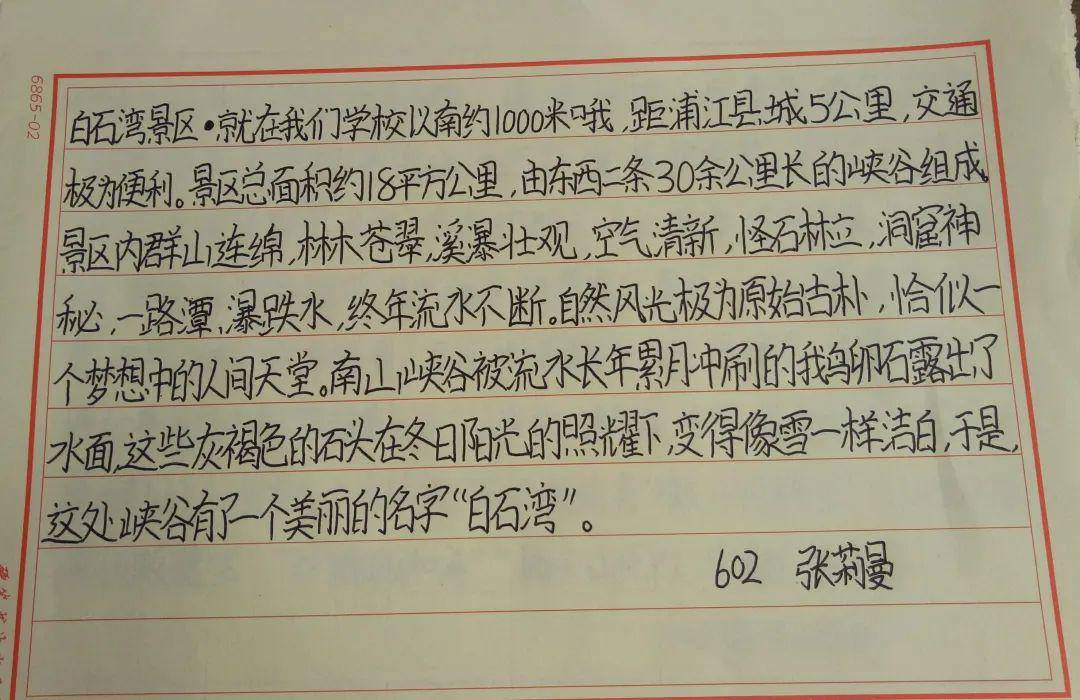 6865-02
白石湾景区•就在我们学校以南约1000米哦,距浦江县城5公里,交通
极为便利。景区总面积约18平方公里,由东西二条30余公里长的峡谷组成。
景区内群山连绵,林木苍翠,溪瀑壮观,空气清新,怪石林立,洞窟神
秘,一路潭,瀑跌水,终年流水不断。自然风光极为原始古朴,恰似一
个梦想中的人间天堂。南山峡谷被流水长年累月冲刷的我鸟卵石露出了
水面,这些灰褐色的石头在冬日阳光的照耀下,变得像雪一样洁白,于是,
这处峡谷有了一个美丽的名字“白石湾”。
602 张莉曼